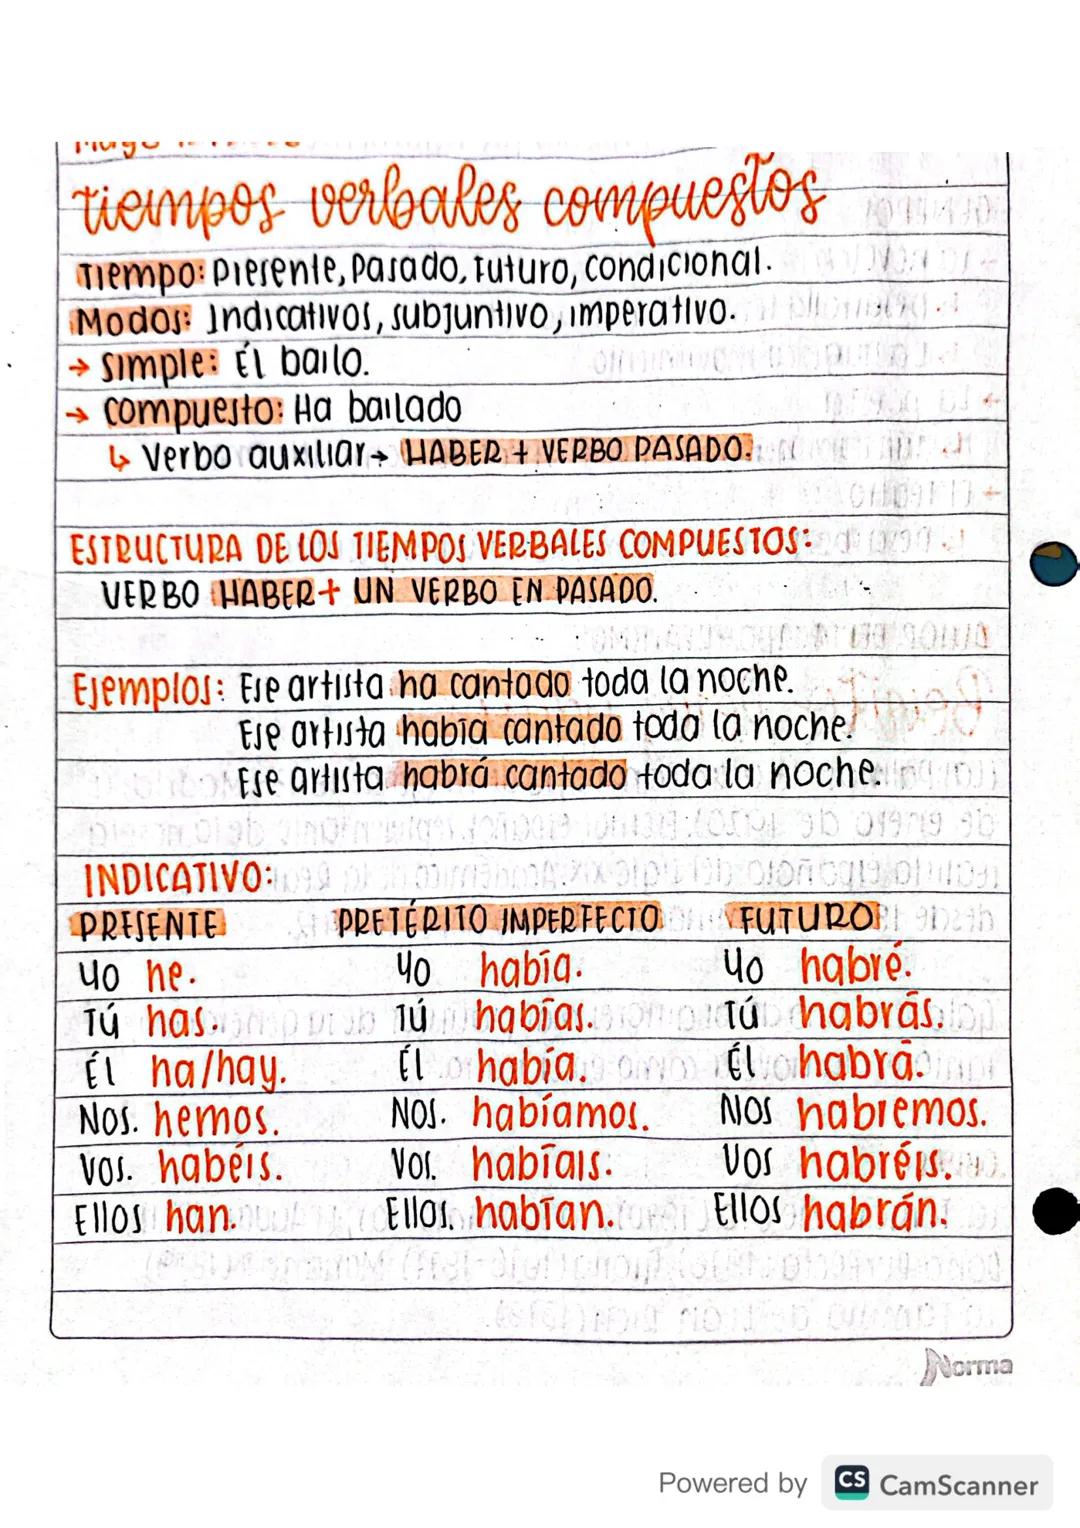 tiempos verbales compuestos
Tiempo: Presente, Pasado, Futuro, Condicional.
Modos: Indicativos, subjuntivo, imperativo.
→ Simple: Él bailo.
→ Compuesto: Ha bailado
↳ Verbo auxiliar → HABER + VERBO PASADO.
ESTRUCTURA DE LOS TIEMPOS VERBALES COMPUESTOS:
VERBO HABER + UN VERBO EN PASADO.
Ejemplos: Ese artista ha cantado toda la noche.
Ese artista había cantado toda la noche.
Ese artista habrá cantado toda la noche.
INDICATIVO:
PRESENTE PRETÉRITO IMPERFECTO FUTURO
Yo he. Yo había. Yo habré.
Tú has. Tú habías. Tú habrás.
Él ha/hay. Él había. Él habrá.
Nos. hemos. Nos. habíamos. Nos habremos.
Vos. habéis. Vos. habíais. Vos habréis.
Ellos han. Ellos. habían. Ellos habrán.
Norma
Powered by CS CamScanner